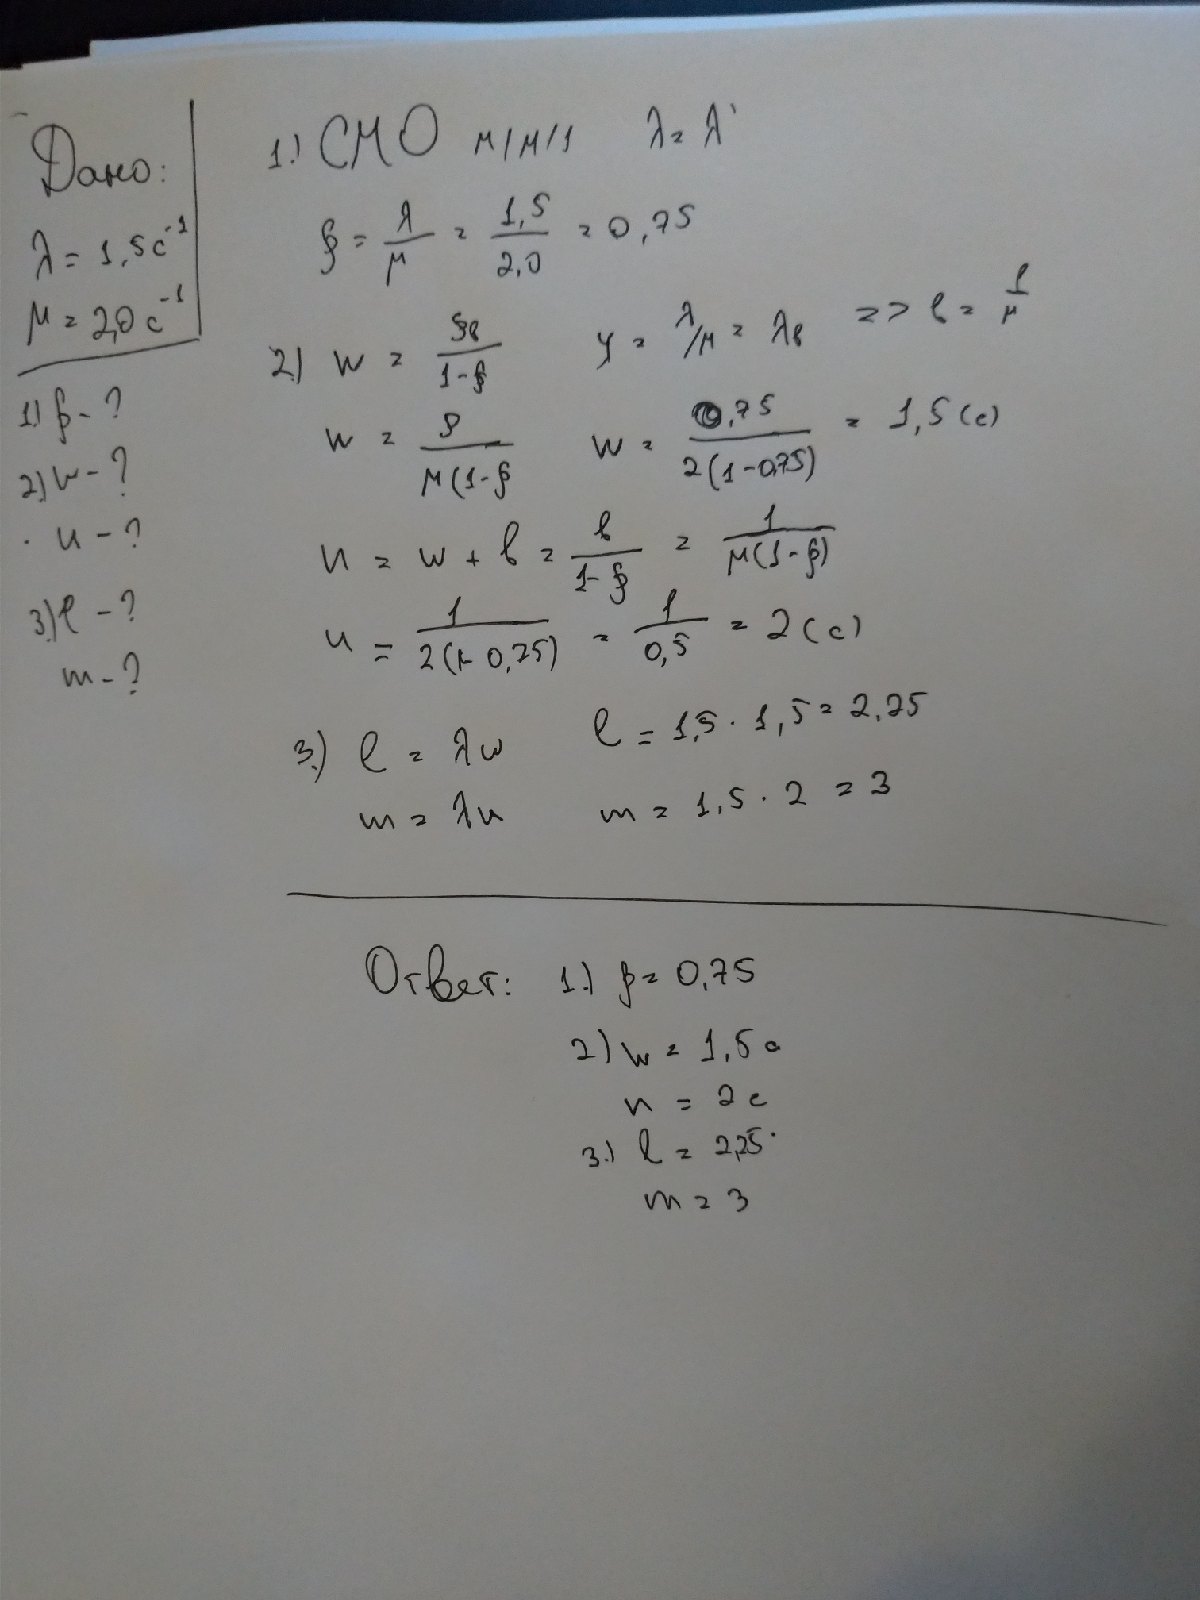 Дано:
λ = 1,5 c⁻¹
μ = 2,0 c⁻¹
1) ρ - ?
2) w - ?
u - ?
3) l - ?
m - ?
1.) СМО M/M/1 λ = λ'
ρ = λ/μ = 1,5/2,0 = 0,75
2) w = ρb/(1-ρ) y = λ/μ = λb => b = 1/μ
w = ρ/(μ(1-ρ w = 0,75/(2(1-0,75)) = 1,5 (c)
u = w + b = b/(1-ρ) = 1/(μ(1-ρ))
u = 1/(2(1-0,75)) = 1/0,5 = 2 (c)
3.) l = λw l = 1,5 · 1,5 = 2,25
m = λu m = 1,5 · 2 = 3
Ответ: 1.) ρ = 0,75
2) w = 1,5 c
u = 2 c
3.) l = 2,25
m = 3